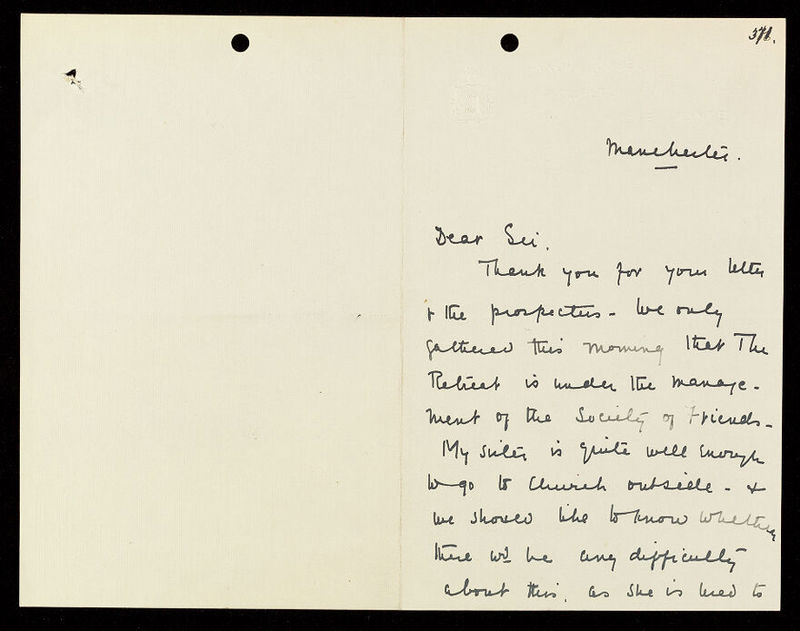 371.
Manchester.
Dear Sir,
Thank you for your letter
& the prospectus - We only
gathered this morning that The
Retreat is under the manage-
ment of the Society of Friends -
My sister is quite well enough
to go to Church outside - &
we should like to know whether
there wd. be any difficulty
about this, as she is used to